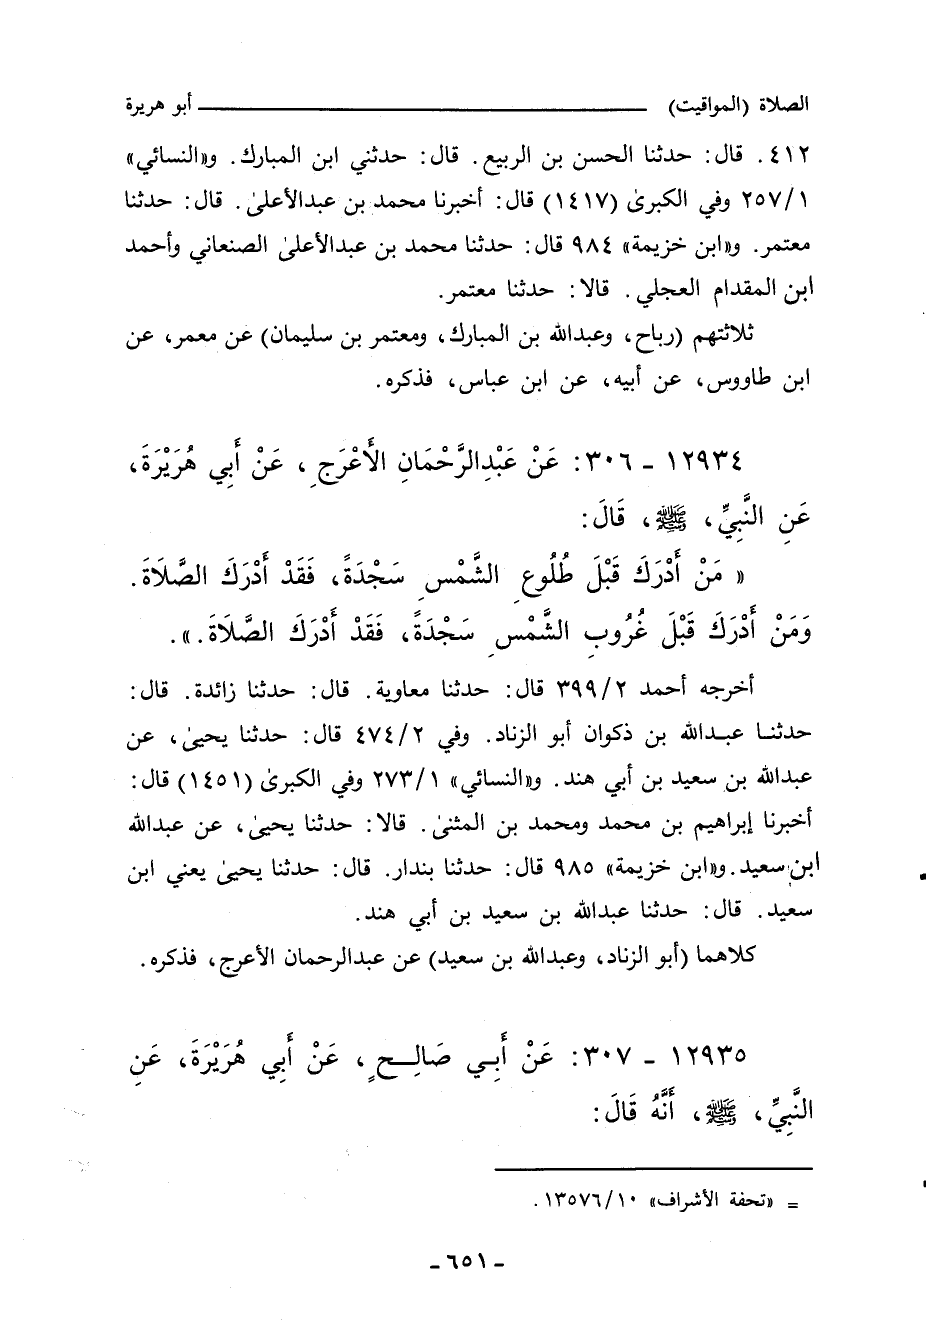 الصلاة (المواقيت) ــــــــــــــــــــــــــــــــــــ أبو هريرة
٤١٢. قال: حدثنا الحسن بن الربيع. قال: حدثني ابن المبارك. و«النسائي»
٢٥٧/١ وفي الكبرىٰ (١٤١٧) قال: أخبرنا محمد بن عبدالأعلىٰ. قال: حدثنا
معتمر. و«ابن خزيمة» ٩٨٤ قال: حدثنا محمد بن عبدالأعلىٰ الصنعاني وأحمد
ابن المقدام العجلي. قالا: حدثنا معتمر.
ثلاثتهم (رباح، وعبدالله بن المبارك، ومعتمر بن سليمان) عن معمر، عن
ابن طاووس، عن أبيه، عن ابن عباس، فذكره.
١٢٩٣٤ - ٣٠٦: عَنْ عَبْدِالرَّحْمَانِ الأَعْرَجِ، عَنْ أَبِي هُرَيْرَةَ،
عَنِ النَّبِيِّ، ﷺ، قَالَ:
« مَنْ أَدْرَكَ قَبْلَ طُلُوعِ الشَّمْسِ سَجْدَةً، فَقَدْ أَدْرَكَ الصَّلَاةَ.
وَمَنْ أَدْرَكَ قَبْلَ غُرُوبِ الشَّمْسِ سَجْدَةً، فَقَدْ أَدْرَكَ الصَّلَاةَ.».
أخرجه أحمد ٣٩٩/٢ قال: حدثنا معاوية. قال: حدثنا زائدة. قال:
حدثنا عبدالله بن ذكوان أبو الزناد. وفي ٤٧٤/٢ قال: حدثنا يحيىٰ، عن
عبدالله بن سعيد بن أبي هند. و«النسائي» ٢٧٣/١ وفي الكبرىٰ (١٤٥١) قال:
أخبرنا إبراهيم بن محمد ومحمد بن المثنىٰ. قالا: حدثنا يحيىٰ، عن عبدالله
ابن سعيد. و«ابن خزيمة» ٩٨٥ قال: حدثنا بندار. قال: حدثنا يحيىٰ يعني ابن
سعيد. قال: حدثنا عبدالله بن سعيد بن أبي هند.
كلاهما (أبو الزناد، وعبدالله بن سعيد) عن عبدالرحمان الأعرج، فذكره.
١٢٩٣٥ - ٣٠٧: عَنْ أَبِي صَالِحٍ، عَنْ أَبِي هُرَيْرَةَ، عَنِ
النَّبِيِّ، ﷺ، أَنَّهُ قَالَ:
= «تحفة الأشراف» ١٣٥٧٦/١٠.
- ٦٥١ -